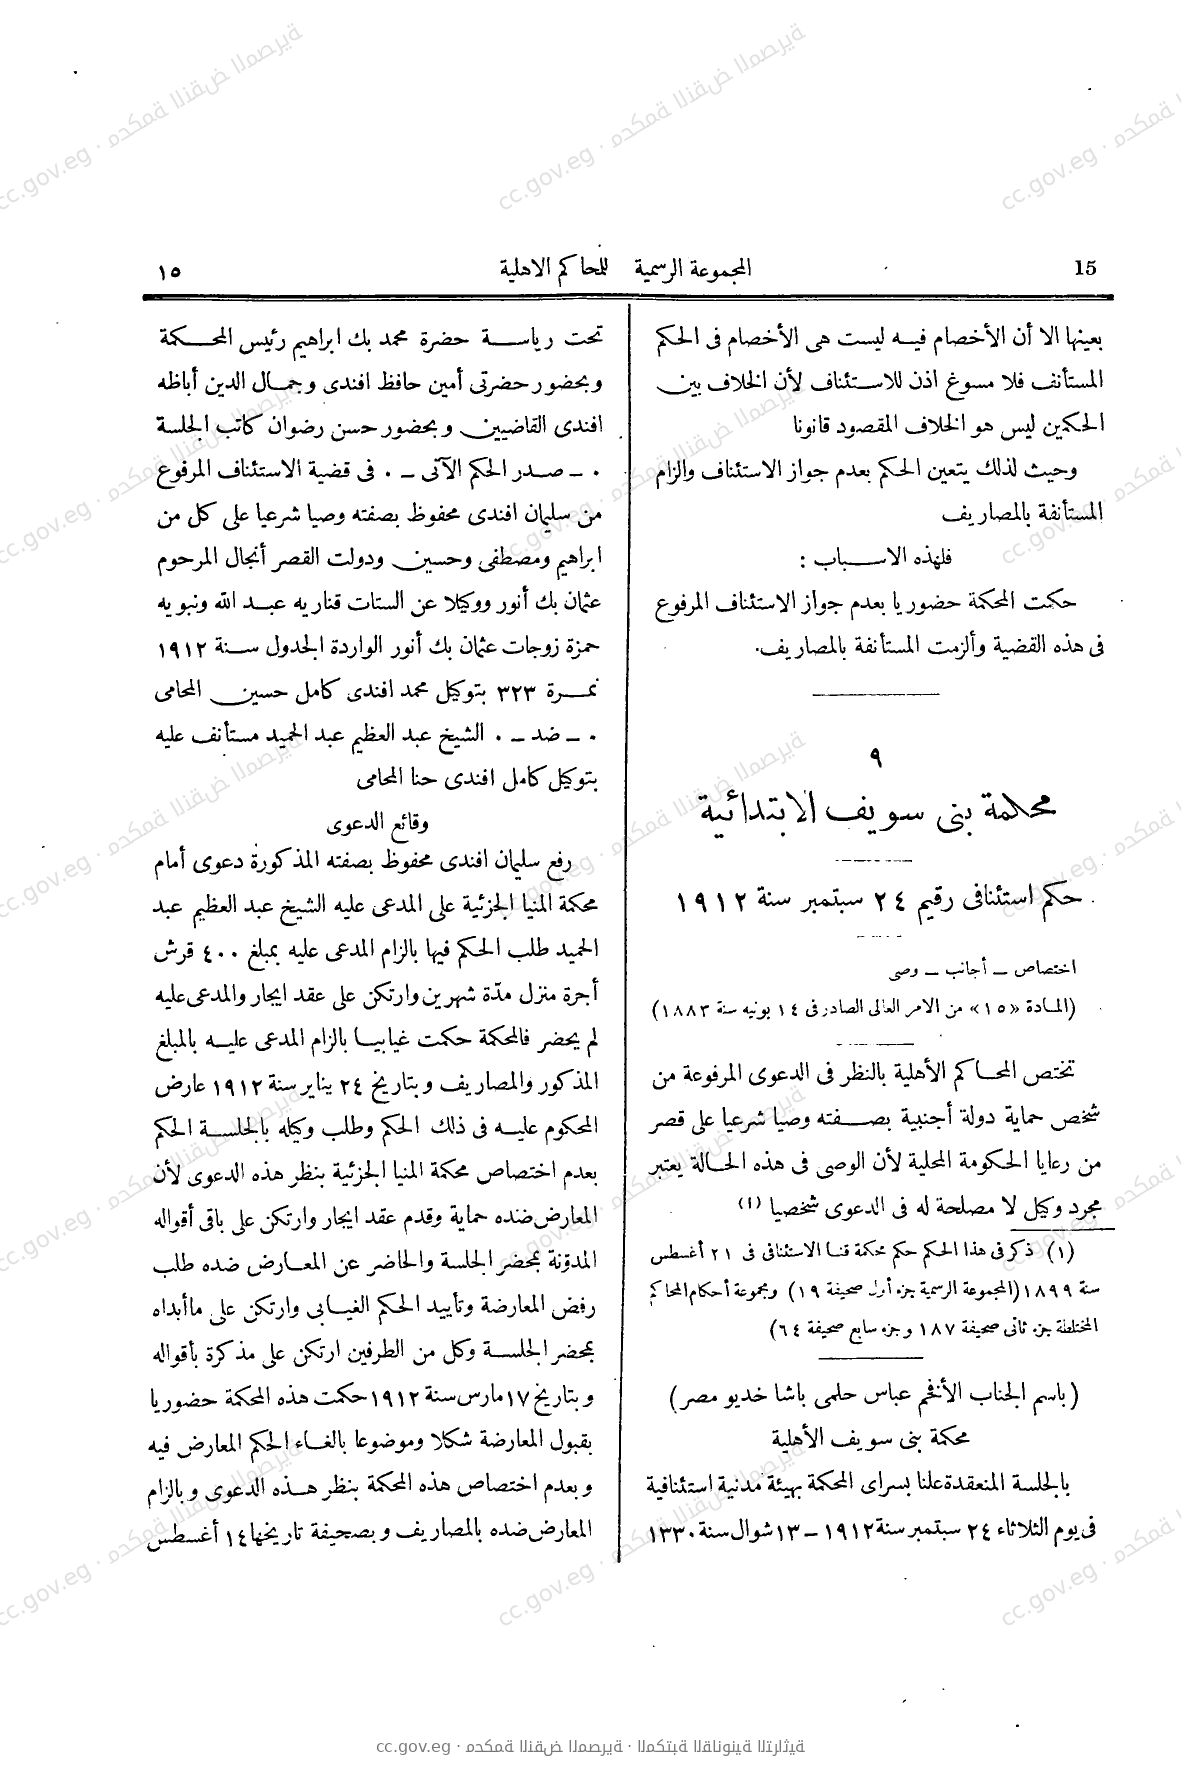 15
المجموعة الرسمية للمحاكم الاهلية
١٥
بعينها الا أن الأخصام فيه ليست هى الأخصام فى الحكم
المستأنف فلا مسوغ اذن للاستئناف لأن الخلاف بين
الحكمين ليس هو الخلاف المقصود قانونا
وحيث لذلك يتعين الحكم بعدم جواز الاستئناف والزام
المستأنفة بالمصاريف
فلهذه الاسباب :
حكمت المحكمة حضوريا بعدم جواز الاستئناف المرفوع
فى هذه القضية وألزمت المستأنفة بالمصاريف.
٩
محكمة بنى سويف الابتدائية
حكم استئنافى رقيم ٢٤ سبتمبر سنة ١٩١٢
اختصاص – أجانب – وصى
(المادة «١٥» من الامر العالى الصادر فى ١٤ يونيه سنة ١٨٨٣)
تختص المحاكم الأهلية بالنظر فى الدعوى المرفوعة من
شخص حماية دولة أجنبية بصفته وصيا شرعيا على قصر
من رعايا الحكومة المحلية لأن الوصى فى هذه الحالة يعتبر
مجرد وكيل لا مصلحة له فى الدعوى شخصيا (١)
(١) ذكر فى هذا الحكم حكم محكمة قنا الاستئنافى فى ٢١ أغسطس
سنة ١٨٩٩ (المجموعة الرسمية جزء أول صحيفة ١٩) ومجموعة أحكام المحاكم
المختلطة جزء ثانى صحيفة ١٨٧ وجزء سابع صحيفة ٦٤)
(باسم الجناب الأفخم عباس حلمى باشا خديو مصر)
محكمة بنى سويف الأهلية
بالجلسة المنعقدة علنا بسراى المحكمة بهيئة مدنية استئنافية
فى يوم الثلاثاء ٢٤ سبتمبر سنة ١٩١٢ – ١٣ شوال سنة ١٣٣٠
تحت رياسة حضرة محمد بك ابراهيم رئيس المحكمة
وبحضور حضرتى أمين حافظ افندى وجمال الدين أباظه
افندى القاضيين وبحضور حسن رضوان كاتب الجلسة
٠ – صدر الحكم الآتى – ٠ فى قضية الاستئناف المرفوع
من سليمان افندى محفوظ بصفته وصيا شرعيا على كل من
ابراهيم ومصطفى وحسين ودولت القصر أنجال المرحوم
عثمان بك أنور ووكيلا عن الستات قناريه عبد الله ونبويه
حمزة زوجات عثمان بك أنور الواردة الجدول سنة ١٩١٢
نمرة ٣٢٣ بتوكيل محمد افندى كامل حسين المحامى
٠ – ضد – ٠ الشيخ عبد العظيم عبد الحميد مستأنف عليه
بتوكيل كامل افندى حنا المحامى
وقائع الدعوى
رفع سليمان افندى محفوظ بصفته المذكورة دعوى أمام
محكمة المنيا الجزئية على المدعى عليه الشيخ عبد العظيم عبد
الحميد طلب الحكم فيها بالزام المدعى عليه بمبلغ ٤٠٠ قرش
أجرة منزل مدّة شهرين وارتكن على عقد ايجار والمدعى عليه
لم يحضر فالمحكمة حكمت غيابيا بالزام المدعى عليه بالمبلغ
المذكور والمصاريف وبتاريخ ٢٤ يناير سنة ١٩١٢ عارض
المحكوم عليه فى ذلك الحكم وطلب وكيله بالجلسة الحكم
بعدم اختصاص محكمة المنيا الجزئية بنظر هذه الدعوى لأن
المعارض ضده حماية وقدم عقد ايجار وارتكن على باقى أقواله
المدوّنة بمحضر الجلسة والحاضر عن المعارض ضده طلب
رفض المعارضة وتأييد الحكم الغيابى وارتكن على ما أبداه
بمحضر الجلسة وكل من الطرفين ارتكن على مذكرة بأقواله
وبتاريخ ١٧ مارس سنة ١٩١٢ حكمت هذه المحكمة حضوريا
بقبول المعارضة شكلا وموضوعا بالغاء الحكم المعارض فيه
وبعدم اختصاص هذه المحكمة بنظر هذه الدعوى وبالزام
المعارض ضده بالمصاريف وبصحيفة تاريخها ١٤ أغسطس
cc.gov.eg · محكمة النقض المصرية · المكتبة القانونية التراثية